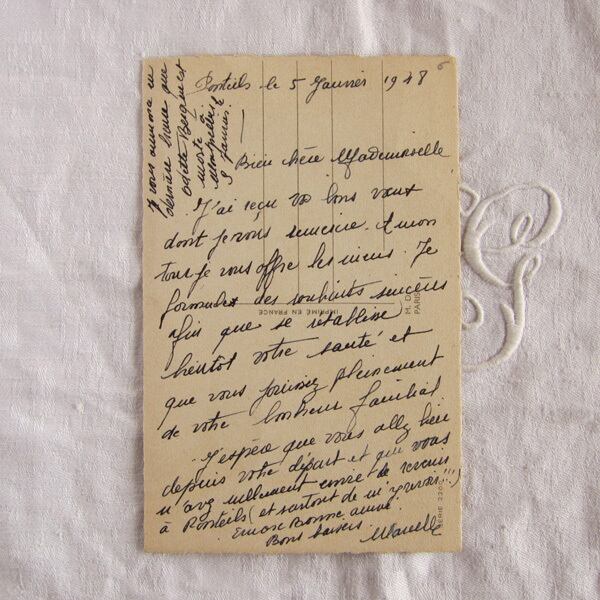 Ponteils le 5 Janvier 1948
6
Bien chère Mademoiselle
J'ai reçu vos bons vœux
dont je vous remercie. A mon
tour je vous offre les miens. Je
formule des souhaits sincères
afin que se rétablisse
bientôt votre santé et
que vous jouissiez pleinement
de votre bonheur familial
J'espère que vous allez bien
depuis votre départ et que vous
n'avez nullement envie de revenir
à Ponteils (et surtout de m'y revoir!!!)
Encore Bonne année
Bons baisers
Marcelle
Je vous annonce en
dernière heure que
Odette
morte à
Montpellier
5 Janvier
IMPRIMÉ EN FRANCE
PARIS
SÉRIE